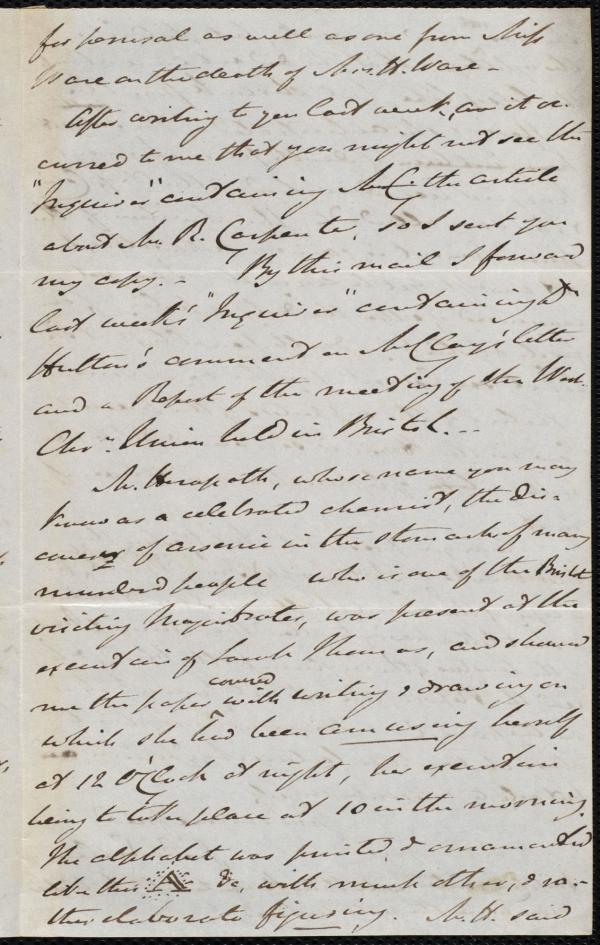 for perusal as well as one from Miss
Ware on the death of Mrs. H. Ware –
After writing to you last week, it oc-
curred to me that you might not see the
"Inquirer" containing the article
about Mr. R. Carpenter, so I sent you
my copy. – By this mail I forward
last week's "Inquirer" containing Dr
Hutton's comment on McClay's letter
and a Report of the meeting of the West.
Chrn. Union held in Bristol. --
Mr. Herapath, whose name you may
know as a celebrated chemist, the dis-
coverer of arsenic in the stomachs of many
murdered people who is one of the Bristol
visiting Magistrates, was present at the
execution of Sarah Thomas, and showed
me the paper covered with writing & drawing on
which she had been amusing herself
at 12 O'Clock at night, her execution
being to take place at 10 in the morning.
The alphabet was printed & ornamented
like this A &c, with much other, & ra-
ther elaborate figuring. Mr. H. said